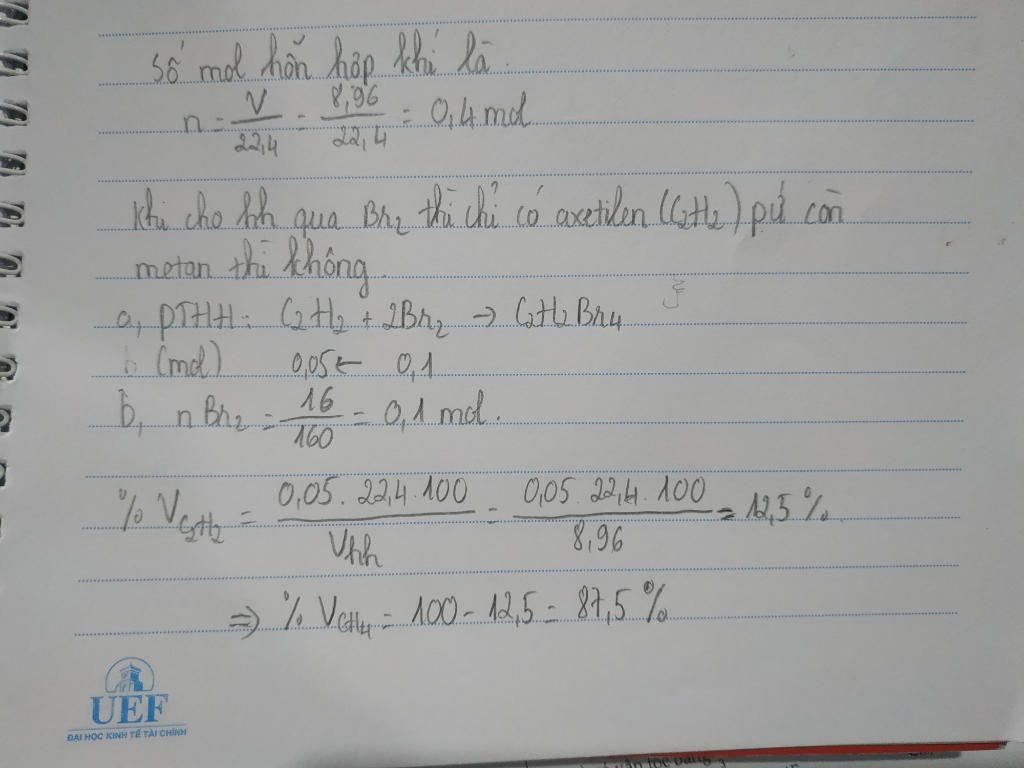 Số mol hỗn hợp khí là.
n = V/22,4 = 8,96/22,4 = 0,4 mol
Khi cho hh qua Br2 thì chỉ có axetilen (C2H2) pứ còn
metan thì không.
a, PTHH: C2H2 + 2Br2 → C2H2Br4
(mol) 0,05 ← 0,1
b, nBr2 = 16/160 = 0,1 mol.
% VC2H2 = 0,05 . 22,4 . 100/Vhh = 0,05 . 22,4 . 100/8,96 = 12,5 %
⇒ % VCH4 = 100 - 12,5 = 87,5 %
UEF
ĐẠI HỌC KINH TẾ TÀI CHÍNH